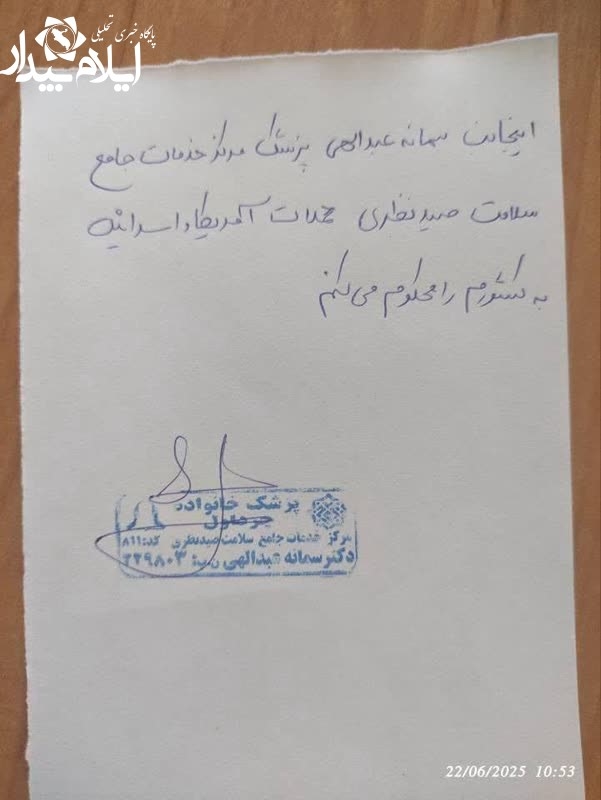 پایگاه خبری تحلیلی
ایلام بیدار
اینجانب سمانه عبدالهی پزشک مرکز خدمات جامع
سلامت صیدنظری حملات آمریکا و اسرائیل
به کشورم را محکوم می‌کنم
پزشک خانواده
مرکز خدمات جامع سلامت صیدنظری کد: ۸۱۱
دکتر سمانه عبدالهی
22/06/2025 10:53